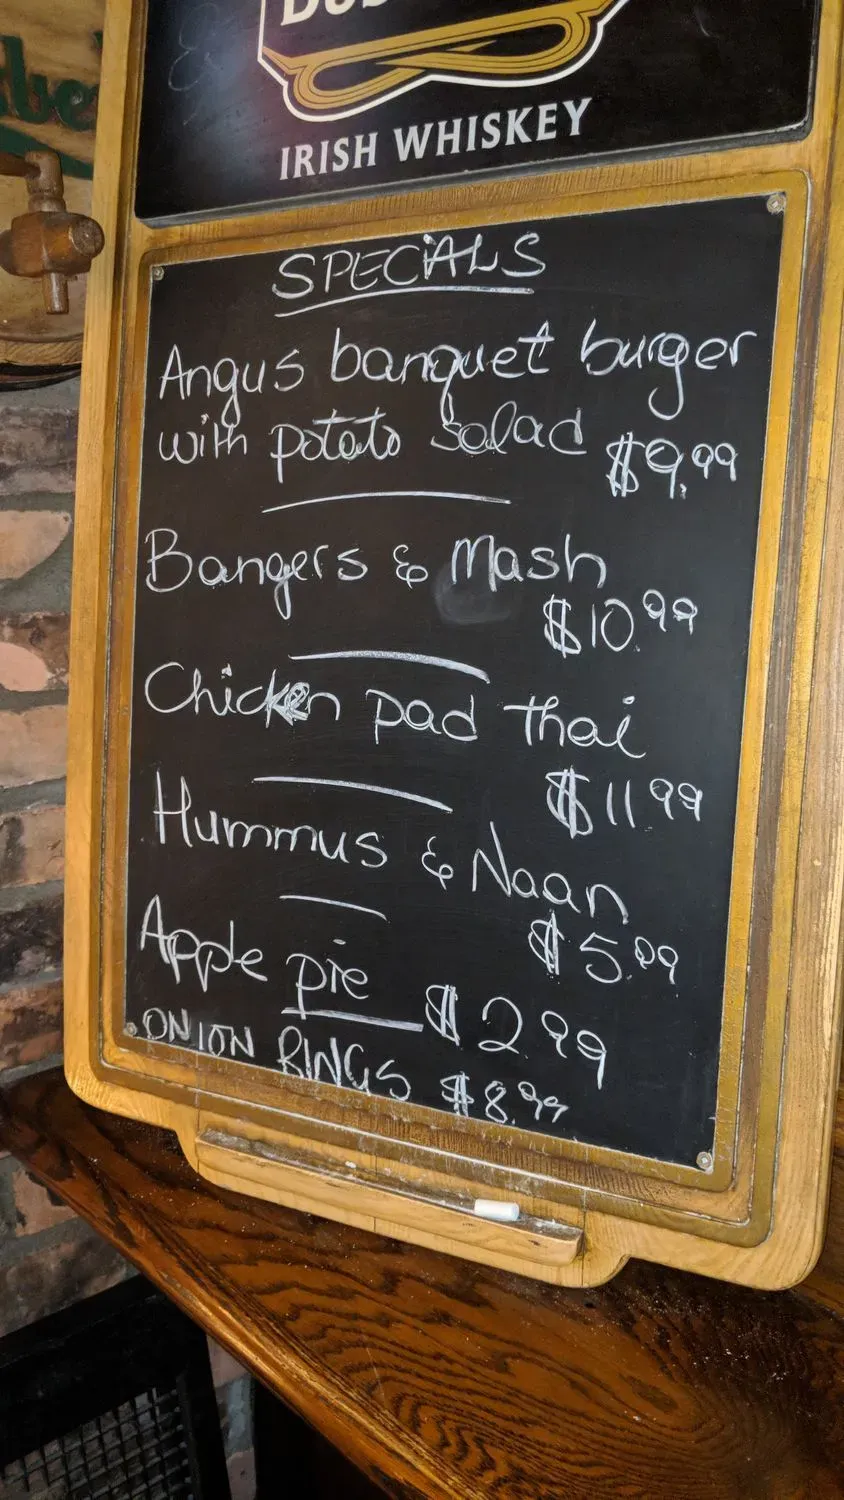 IRISH WHISKEY
SPECIALS
Angus banquet burger
with potato salad $9.99
Bangers & Mash
$10.99
Chicken pad thai
$11.99
Hummus & Naan
$5.99
Apple pie $2.99
ONION RINGS $8.99